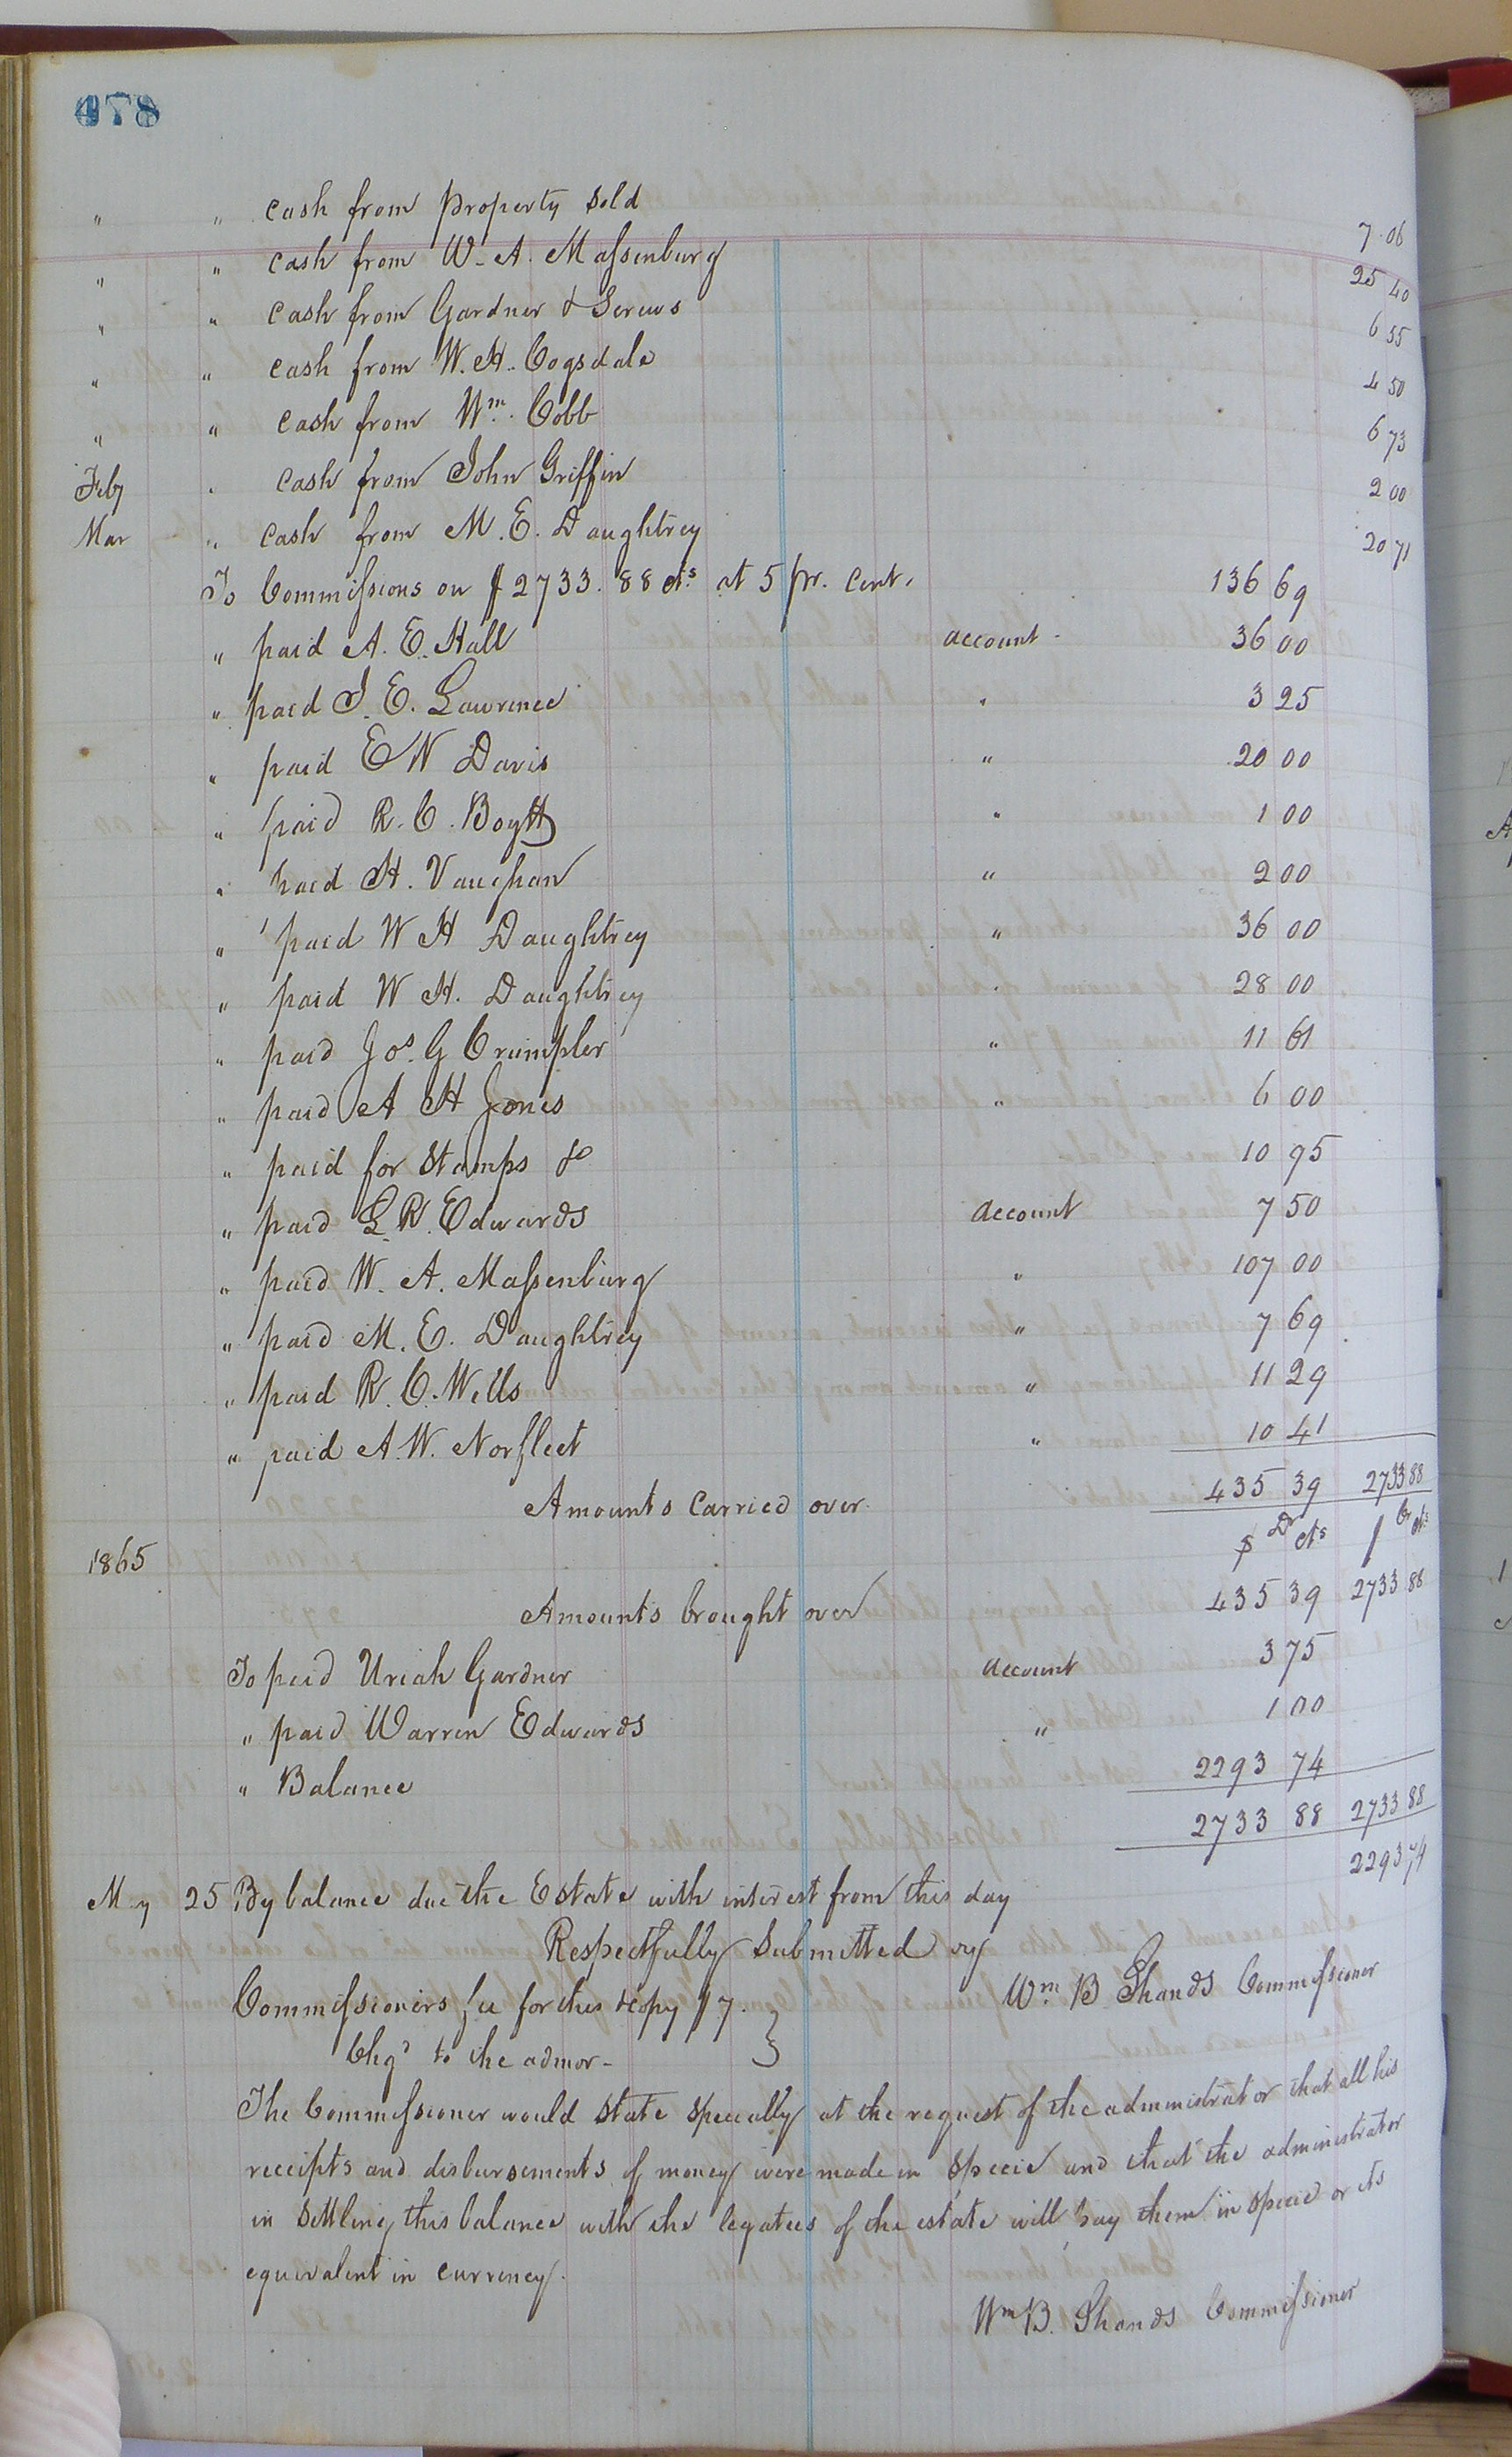 478
" " cash from property sold 7.06
" " cash from W. A. Massenburg 25 40
" " cash from Gardner & Screws 6 55
" " cash from W. H. Cogsdale 4 50
" " cash from Wm. Cobb 6 73
Feby " cash from John Griffin 2 00
Mar " cash from M. E. Daughtrey 20 71
To Commissions on $2733.88 cts at 5 pr. cent. 136 69
" paid A. E. Hall account 36 00
" paid J. E. Lawrence " 3 25
" paid E W Davis " 20 00
" paid R. C. Boytt " 1 00
" paid H. Vaughan " 2 00
" paid W H Daughtrey " 36 00
" paid W H. Daughtrey " 28 00
" paid Jos. G Crumpler " 11 61
" paid A H Jones " 6 00
" paid for Stamps &c 10 95
" paid L. R. Edwards account 7 50
" paid W. A. Massenburg " 107 00
" paid M. E. Daughtrey " 7 69
" paid R. C. Wells " 11 29
" paid A. W. Norfleet " 10 41
Amounts carried over 435 39 2733 88
$ Dr cts $ Cr cts
1865
Amounts brought over 435 39 2733 88
To paid Uriah Gardner account 3 75
" paid Warren Edwards " 1 00
" Balance 2293 74
2733 88 2733 88
2293 74
May 25 By balance due the Estate with interest from this day
Respectfully Submitted by
Wm. B Shands Commissioner
Commissioners fee for this & copy $7. }
Chgd to the admor -
The Commissioner would state specially at the request of the administrator that all his
receipts and disbursements of money were made in specie and that the administrator
in settling this balance with the legatees of the estate will pay them in specie or its
equivalent in currency.
Wm B. Shands Commissioner